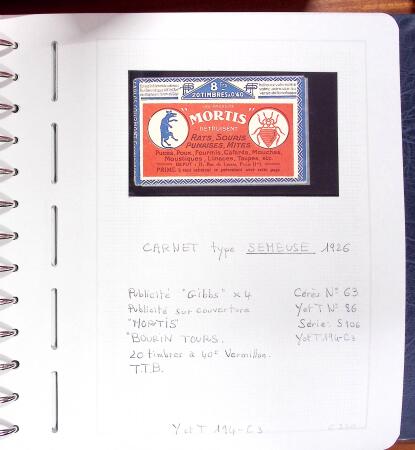 8F
20 TIMBRES A 0F40
LES PRODUITS
"MORTIS"
DÉTRUISENT
RATS, SOURIS
PUNAISES, MITES
Puces, Poux, Fourmis, Cafards, Mouches,
Moustiques, Limaces, Taupes, etc.
PRIME
CARNET type SEMEUSE 1926
Publicité "Gibbs" x 4 Cérès N° 63
Publicité sur couverture Y et T N° 86
"MORTIS" Série: S 106
"BOURIN TOURS. Y et T 194-C3
20 timbres à 40c Vermillon.
T.T.B.
Y et T 194-C3